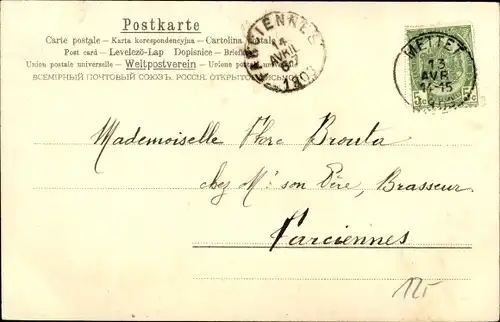 Postkarte
Carte postale – Karta korespondencyjna – Cartolina postale
Post card – Levelező-Lap Dopisnice – Briefkaart
Union postale universelle – Weltpostverein – Unione postale
ВСЕМІРНЫЙ ПОЧТОВЫЙ СОЮЗЪ. РОССІЯ. ОТКРЫТОЕ ПИСЬМО
FARCIENNES
14
AVRIL
1903
METTET
13
AVR
14-15
5c 5c
Mademoiselle Flore Brouta
chez Mr son Père, Brasseur
Farciennes